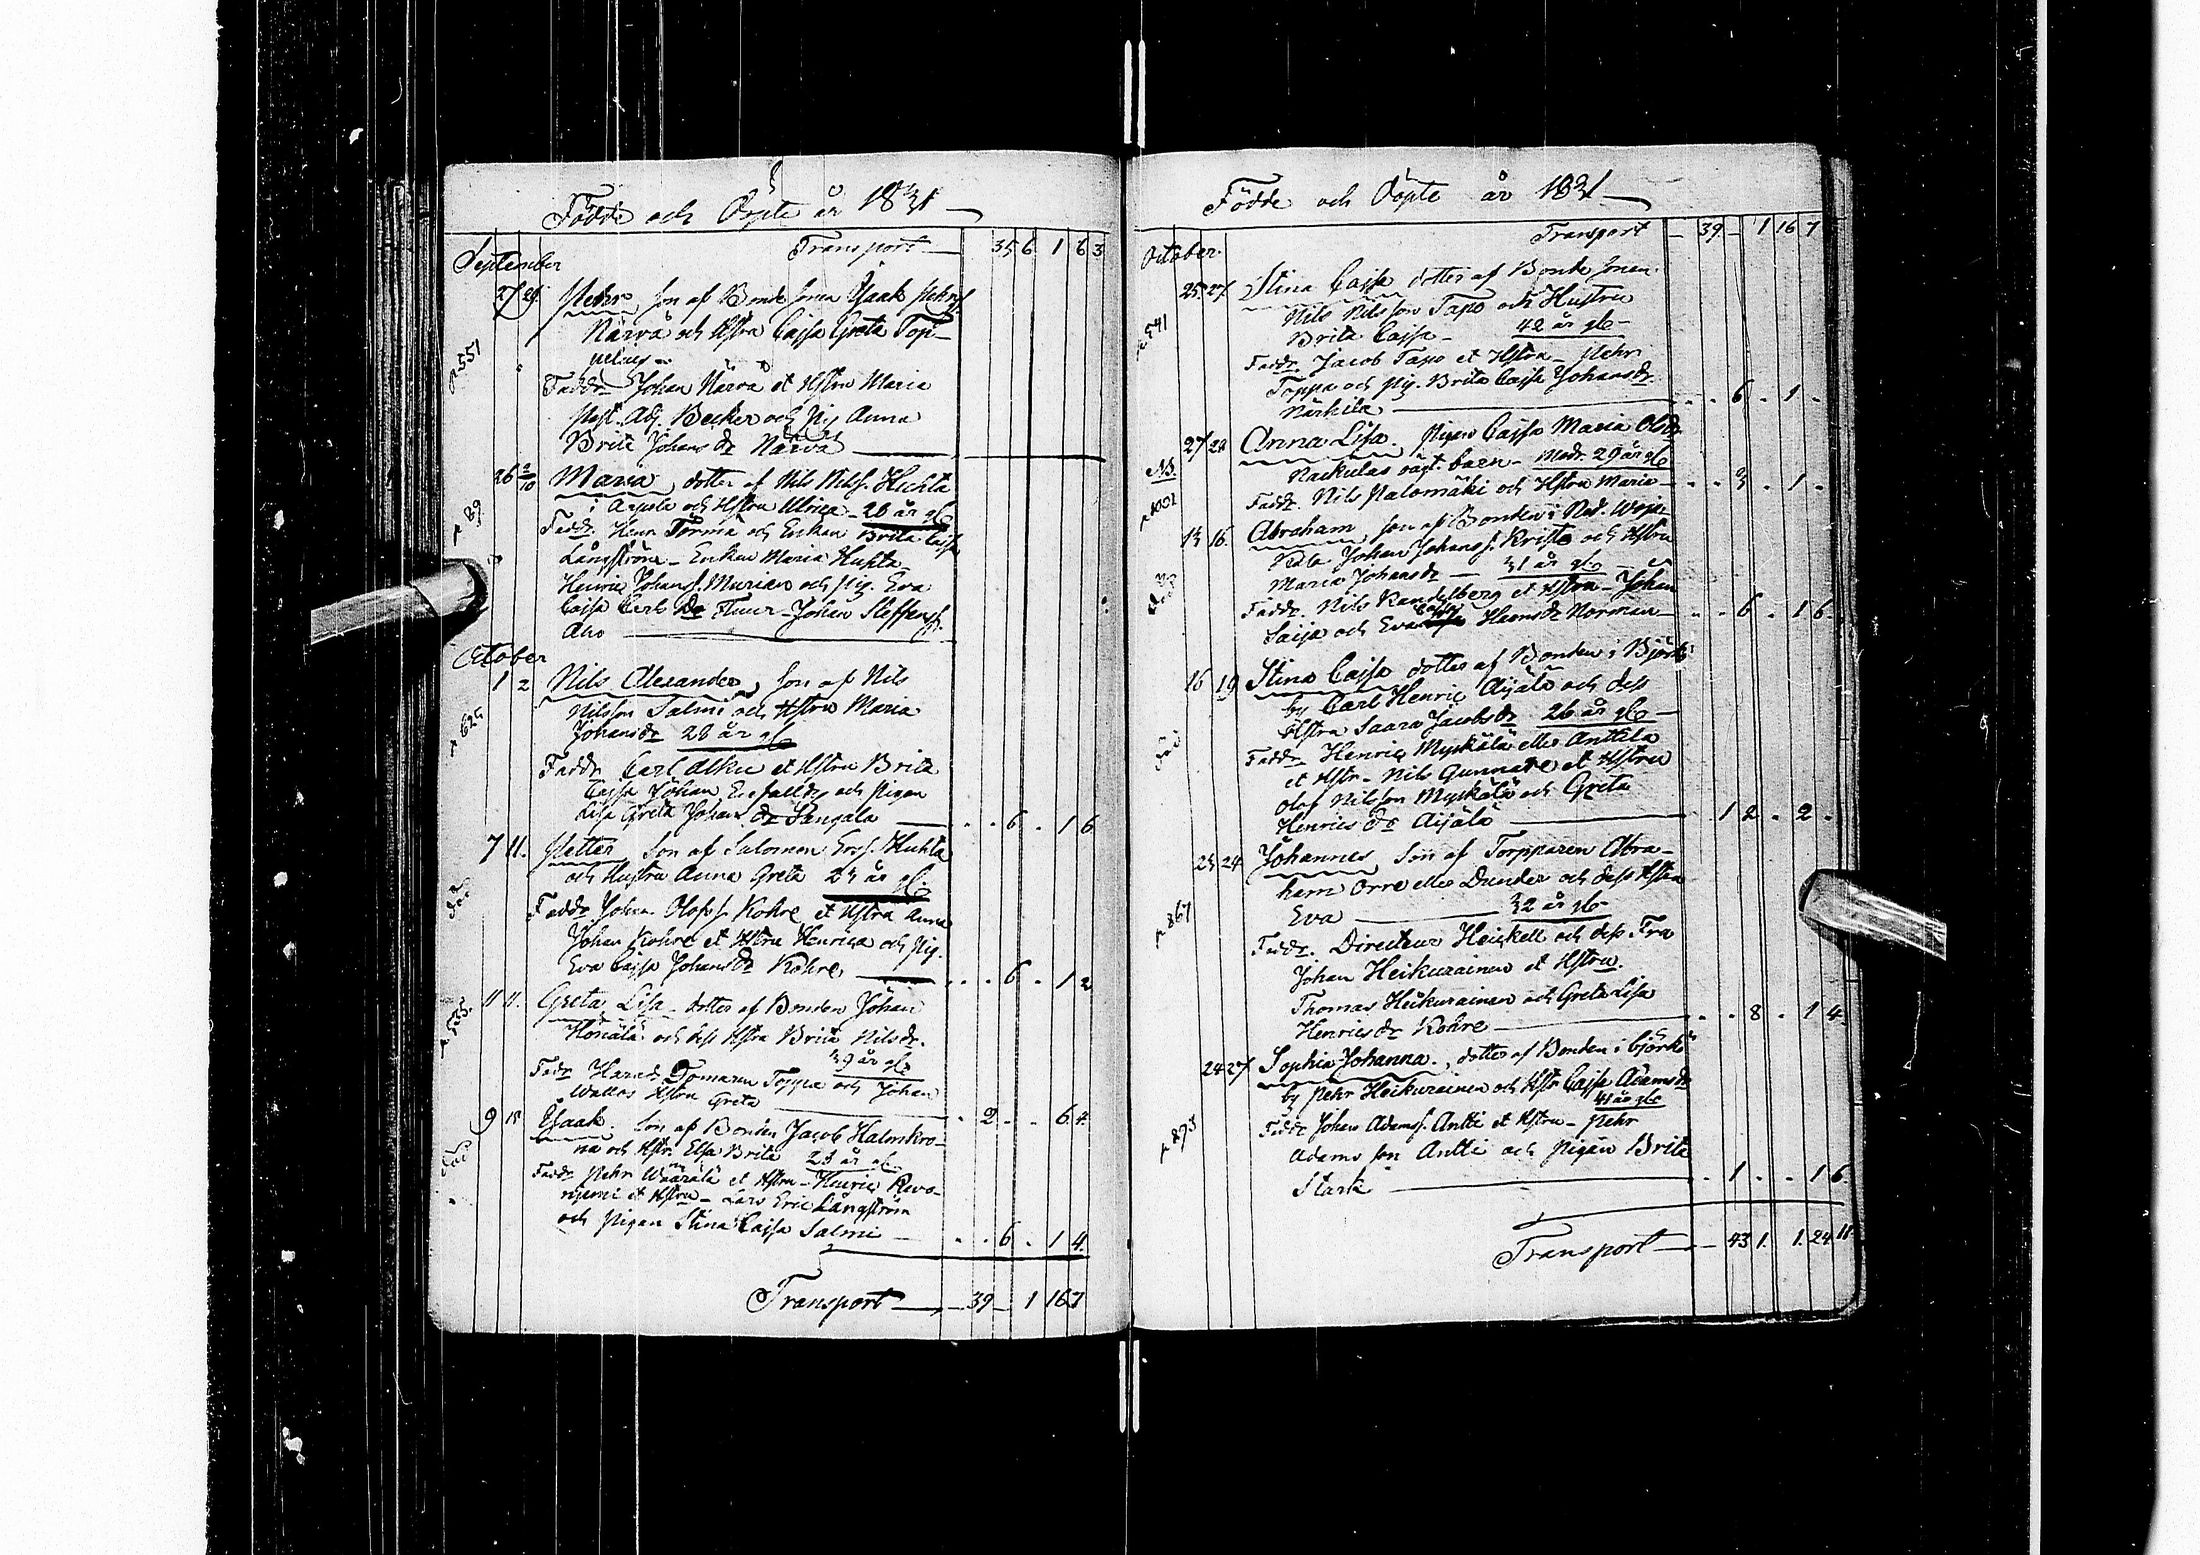 Födde och Döpte år 1831
Transport 35 6 1 6 3
September
27 29 Pehr, son af Bonde sonen Isaak Pehrs.
Närvä och Hstru Cajsa Greta Top-
p 551
Faddr Johan Närvä et Hstru Maria
Past. Adj. Becker och Pig Anna
Brita Johans dr Närvä
26 2/10 Maria, dotter af Nils Nilss. Huhta
i Arpela och Hstru Ulrica 28 år gl
p 89
Faddr Henr Törmä och Enkan Brita Cajsa
Långström - Enkan Maria Huhta
Henric Johans s. Murien och Pig. Eva
Cajsa Carls dr Fluur - Johan Steffans s.
Aho
October
1 2 Nils Alexander, son af Nils
Nilsson Salmi och Hstru Maria
Johans dr 28 år gl
p 625
Faddr Carl Alku et Hstru Brita
Cajsa Johan och Pigan
Lisa Greta Johans dr Sangala 6 1 6
7 11. Petter, son af Salomon Ers s. Huhta
och Hustru Anna Greta 23 år gl
Faddr Johan Olofs s. Kohre et Hstru Anna
Johan Kohre et Hstru Henrica och Pig.
Eva Cajsa Johans dr Kohre 6 1 2
11 11. Greta Lisa dotter af Bonden Johan
och dess Hstru Brita Nilsdr.
39 år gl
Faddr Harald Tomann Toppa och Johan
Wallas Hstru Greta 2 6 4.
9 15 Isaak. son af Bonden Jacob Halmkro-
na och Hstr. Elsa Brita 23 år gl
Faddr Pehr Wäärälä et Hstru - Henric Revo-
niemi et Hstru - Lars Eric Långström
och Pigan Stina Cajsa Salmi 6 1 4.
Transport 39 1 16 7
Födde och Döpte år 1831
Transport 39 1 16 7
October.
25. 27. Stina Cajsa dotter af Bonde sonen
Nils Nilsson Tapo och Hustru
p 541
Brita Cajsa 42 år gl
Faddr. Jacob Tapo et Hstru - Pehr
Toppa och Pig. Brita Cajsa Johansdr.
Närhilä 6 1
27 28 Anna Lisa. Pigan Cajsa Maria Olsdr
NB. Rackulas oägt. barn - Modr. 29 år gl
p 1002 Faddr. Nils Palomäki och Hstru Maria 3 1
13 16. Abraham, son af Bonden i Ned. Woja-
kala Johan Johans s. Kritto och Hstru
Maria Johansdr 31 år gl
Faddr. Nils Randelberg et Hstru - Johan
Saija och Eva Cajsa Hansdr Norman 6 1 6.
16 19 Stina Cajsa dotter af Bonden i Björkö
by Carl Henric Aijälä och dess
Hstru Saara Jacobsdr 26 år gl
Faddr Henric Myskälä eller Anttila
et Hstr - Nils Gunnare et Hstru
Olof Nilsson Myskälä och Greta
Henrics dr Aijälä 1 2 2
23 24 Johannes, son af Torpparen Abra-
ham Orre eller Dunder och dess Hstru
Eva 32 år gl
p 867
Faddr. Directeur Heickell och dess Fru
Johan Heikurainen et Hstru.
Thomas Heikurainen och Greta Lisa
Henricsdr Kohre 8 1 4.
24 27 Sophia Johanna., dotter af Bonden i Björkö
by Pehr Heikurainen och Hstr Cajsa Adamsdr
41 år gl
p 893
Faddr Johan Adams s. Antti et Hstru - Pehr
Adams son Antti och Pigan Brita
Stark 1 1 6.
Transport 43 1. 1. 24 11